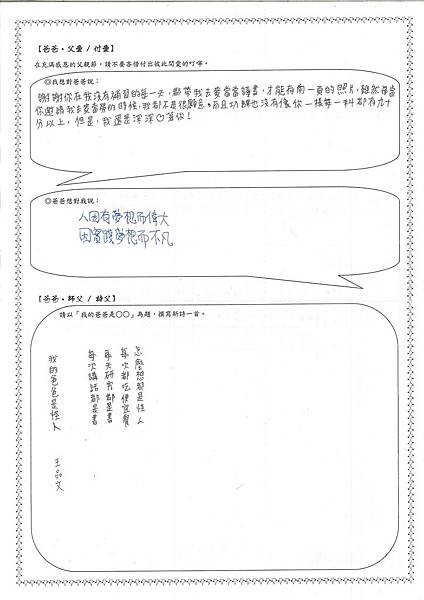 【爸爸‧父愛 / 付愛】
在充滿感恩的父親節，請不要吝惜付出彼此間愛的叮嚀。
◎我想對爸爸說：
謝謝你在我沒有補習的每一天，都帶我去麥當當讀書，才能有前一頁的照片，雖然每當
你邀請我去麥當勞的時候，我都不是很願意。而且功課也沒有像你一樣每一科都有九十
分以上，但是，我還是深深♡著你！
◎爸爸想對我說：
人因有夢想而偉大
因實踐夢想而不凡
【爸爸‧師父 / 詩父】
請以「我的爸爸是○○」為題，撰寫新詩一首。
怎麼想都是怪人
每次都吃便宜餐
每天研究都是書
每次講話都是書
我的爸爸是怪人 王品文